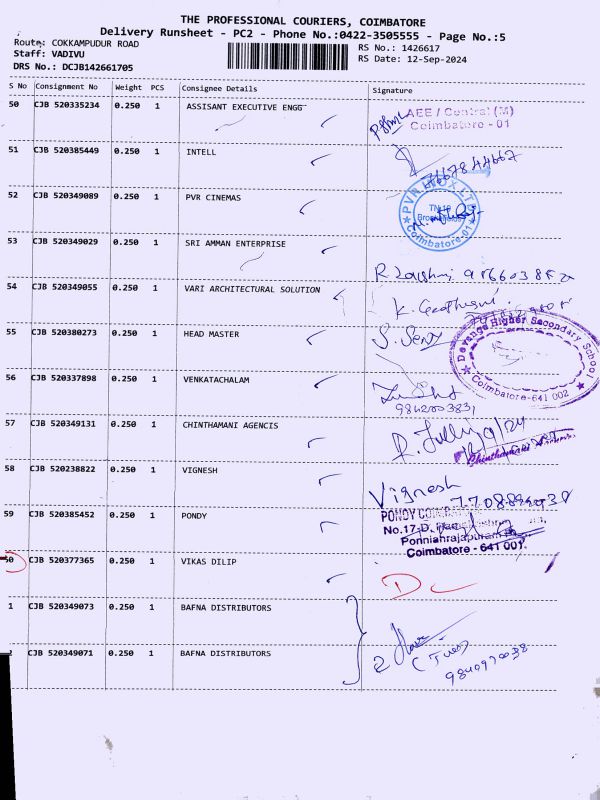 THE PROFESSIONAL COURIERS, COIMBATORE
Delivery Runsheet - PC2 - Phone No.:0422-3505555 - Page No.:5
Route: COKKAMPUDUR ROAD
Staff: VADIVU
DRS No.: DCJB142661705
RS No.: 1426617
RS Date: 12-Sep-2024
S No Consignment No Weight PCS Consignee Details Signature
50 CJB 520335234 0.250 1 ASSISANT EXECUTIVE ENGG
AEE / Central (M)
Coimbatore - 01
51 CJB 520385449 0.250 1 INTELL
52 CJB 520349089 0.250 1 PVR CINEMAS
PVR INOX LTD
Coimbatore-01
53 CJB 520349029 0.250 1 SRI AMMAN ENTERPRISE
54 CJB 520349055 0.250 1 VARI ARCHITECTURAL SOLUTION
55 CJB 520380273 0.250 1 HEAD MASTER
Devanga Higher Secondary School
Coimbatore-641 002
56 CJB 520337898 0.250 1 VENKATACHALAM
9842003831
57 CJB 520349131 0.250 1 CHINTHAMANI AGENCIES
58 CJB 520238822 0.250 1 VIGNESH
Vignesh
59 CJB 520385452 0.250 1 PONDY
PONDY
No.17-D,
Ponniahrajapuram
Coimbatore - 641 001.
60 CJB 520377365 0.250 1 VIKAS DILIP
DC
1 CJB 520349073 0.250 1 BAFNA DISTRIBUTORS
CJB 520349071 0.250 1 BAFNA DISTRIBUTORS
2